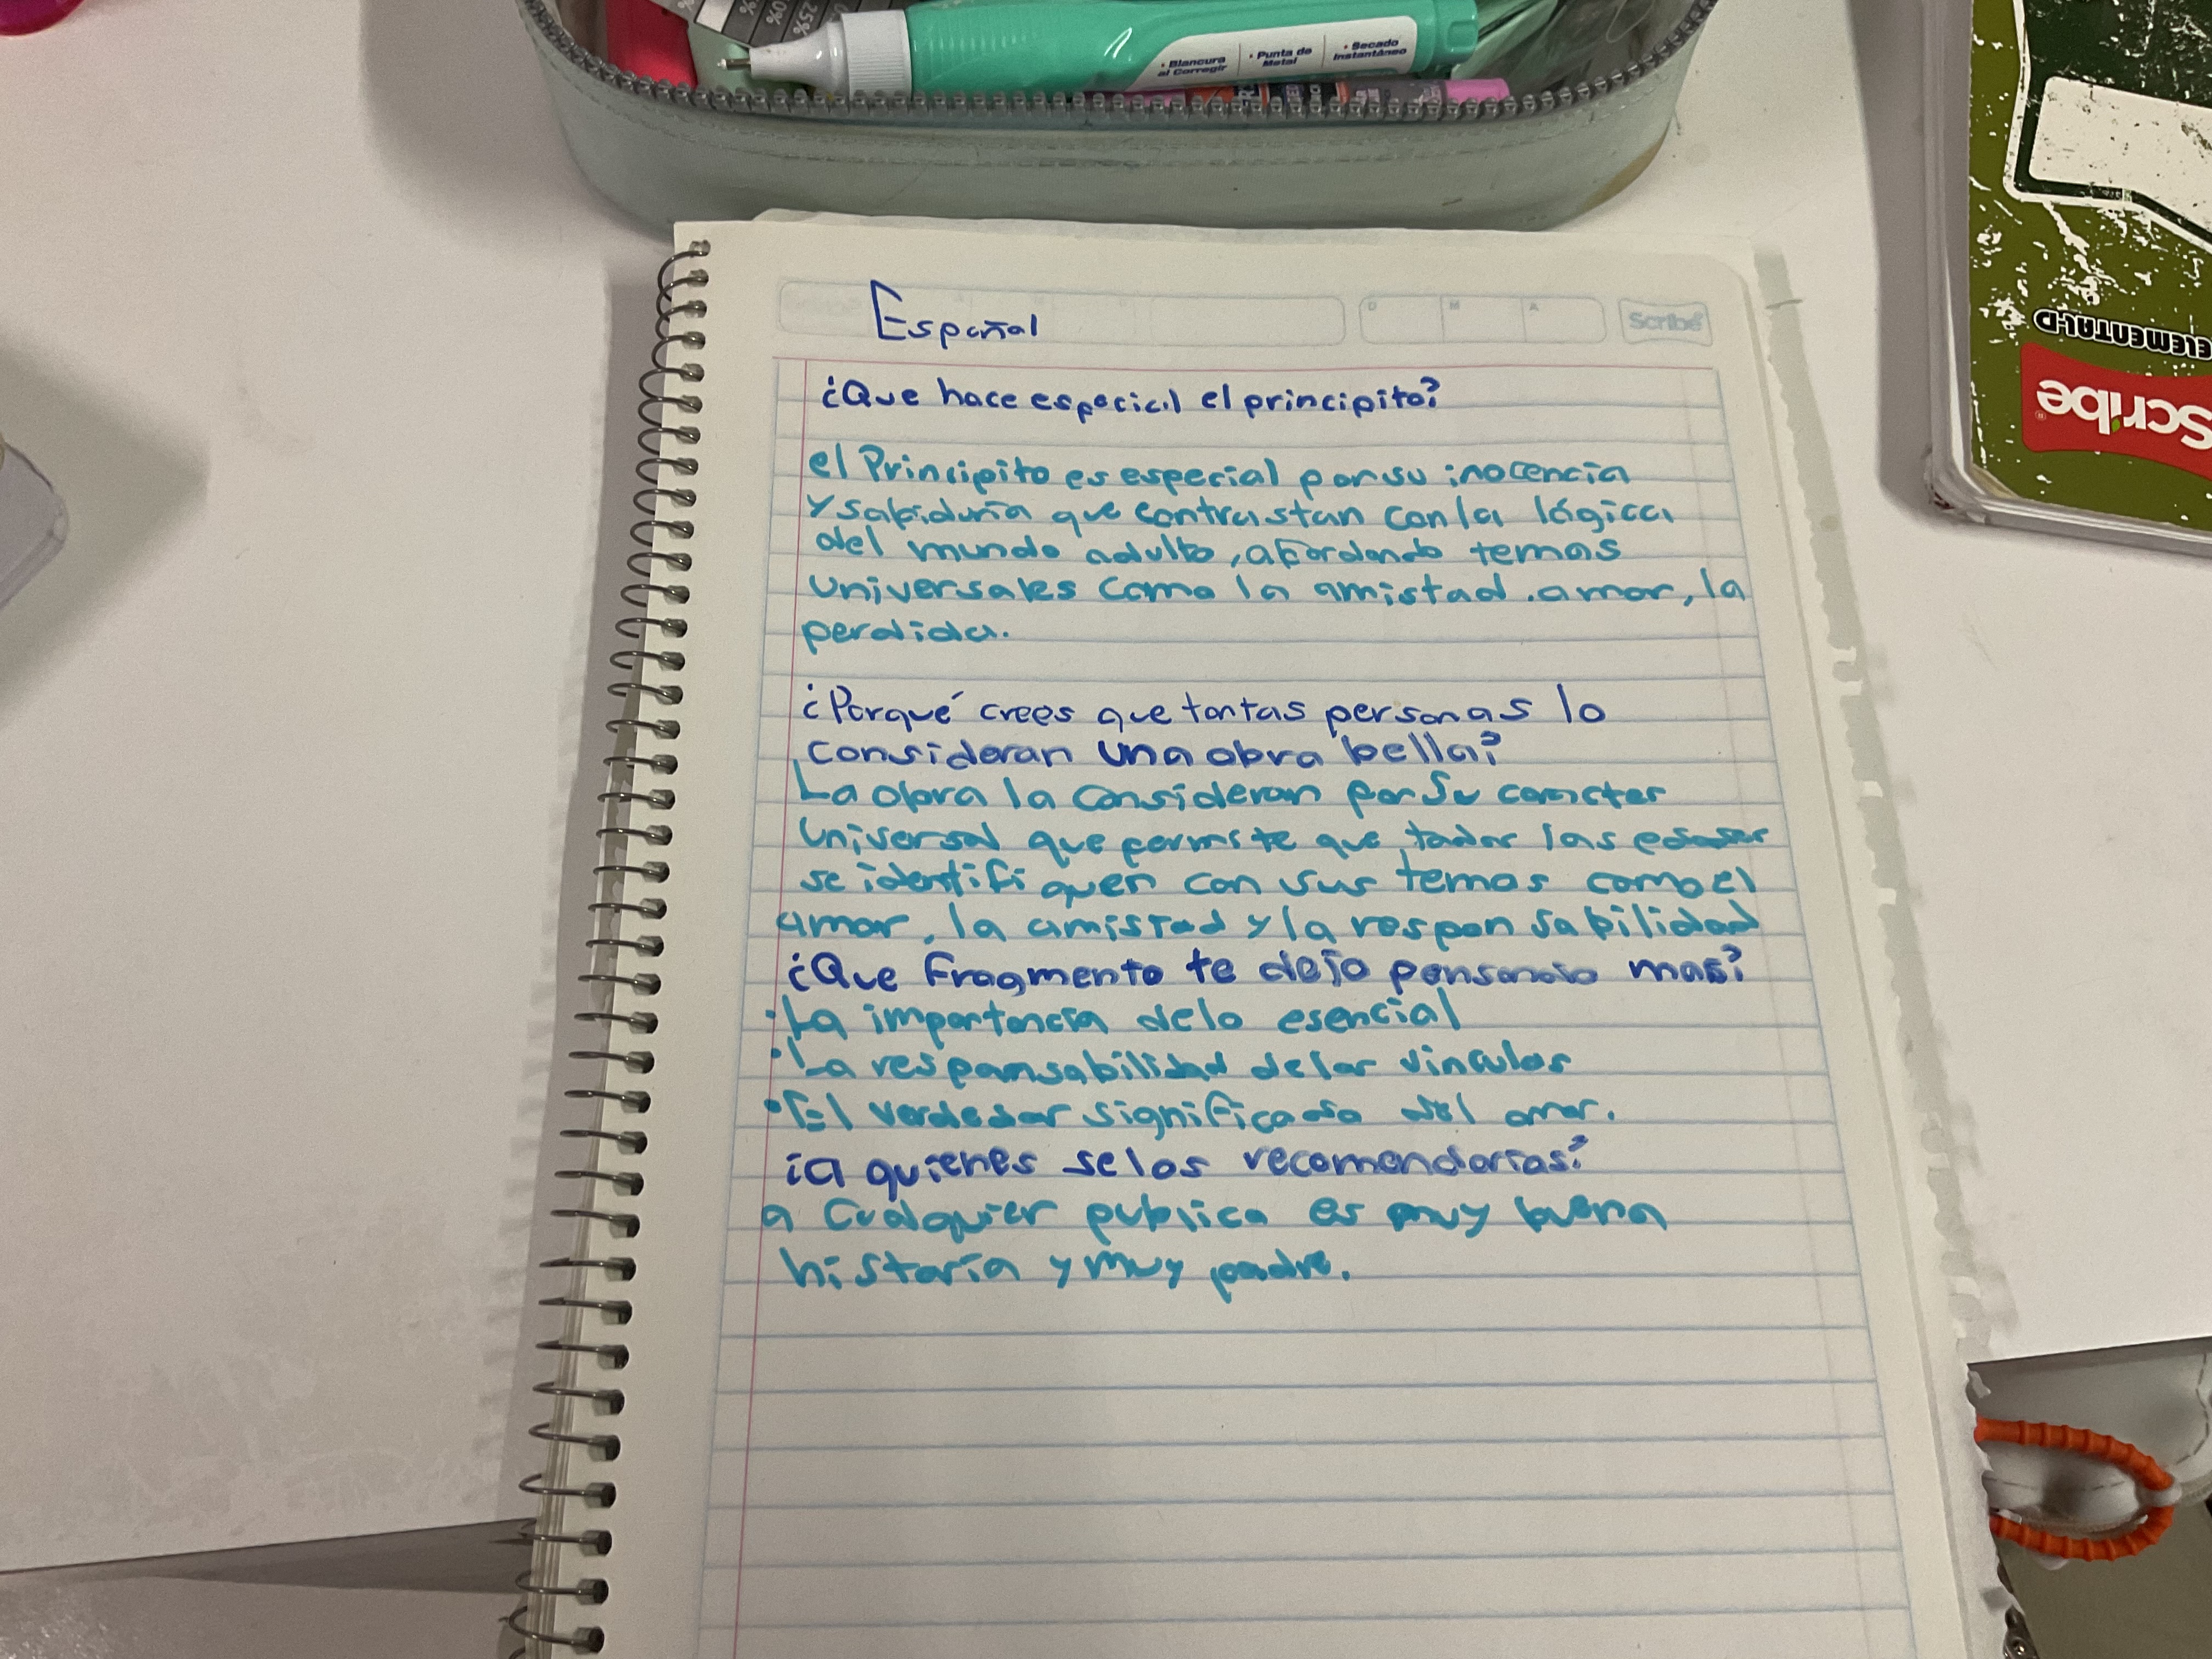 25%
• Blancura al Corregir
• Punta de Metal
• Secado Instantáneo
Español
D M A
Scribe
ELEMENTAL-D
Scribe
¿Que hace especial el principito?
el Principito es especial por su inocencia
y sabiduría que contrastan con la lógica
del mundo adulto, abordando temas
universales como la amistad. amor, la
perdida.
¿Porqué crees que tantas personas lo
consideran una obra bella?
La obra la consideran por su caracter
universal que permite que todas las
se identifi quen con sus temas como el
amor, la amistad y la respon sabilidad
¿Que Fragmento te dejo pensando mas?
•La importancia delo esencial
•La responsabilidad delas vinculos
•El verdedar significado del amor.
¿a quienes selos recomendarias?
a Cualquier publico es muy buena
historia y muy padre.